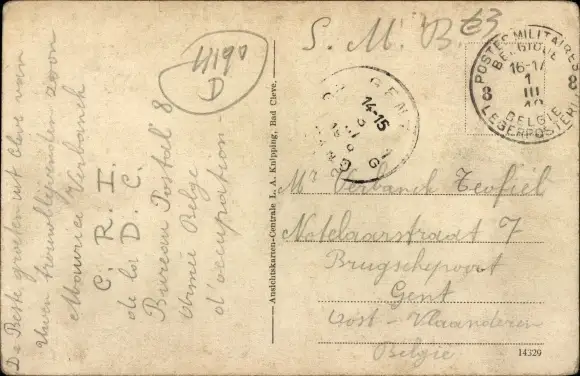 De Beste groeten uit Cleve van
Uwen trouwblijvenden zoon
Maurice Verbanck
C. R. I.
de la D. C.
Bureau Postal 8
Armée Belge
d'occupation -
D
Ansichtskarten-Centrale L. A. Knipping, Bad Cleve.
S. M. B. 63
GENT
14-15
GAND
POSTES MILITAIRES
BELGIQUE
16-17
1
III
8 8
BELGIE
LEGERPOSTERIJ
Mr Verbanck Teofiel
Notelaarstraat 7
Brugschepoort
Gent
Oost - Vlaanderen
Belgie
14329